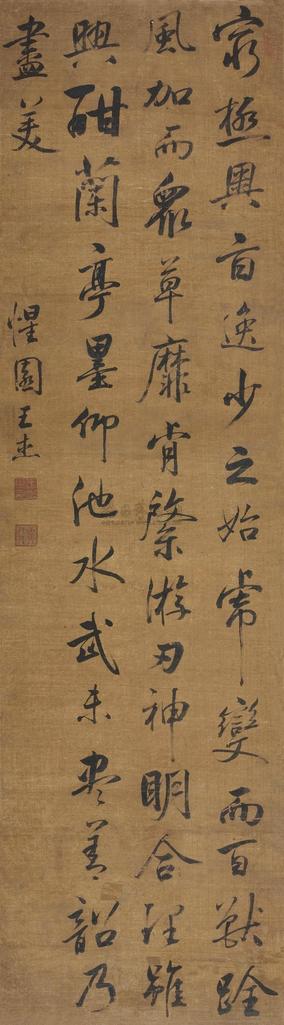 窮極奥旨逸少之始虎變而百獸跧
風加而衆草靡肯綮游刃神明合理雖
興酣蘭亭墨仰池水武未盡善韶乃
盡美
惺園王杰